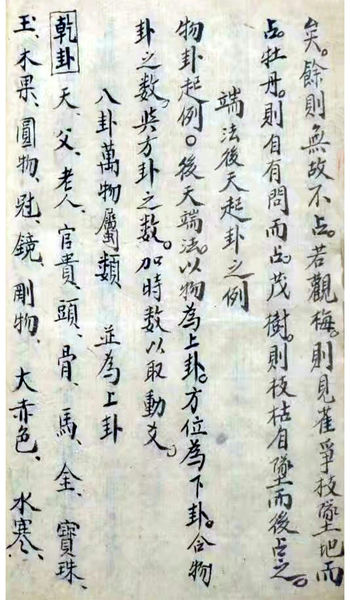 矣。餘則無故不占。若觀梅。則見雀爭枝墜地而
占。牡丹。則自有問而占。茂樹。則枝枯自墜而後占之。
端法後天起卦之例
物卦起例。後天端法。以物為上卦。方位為下卦。合物
卦之数。與方卦之数。加時数以取動爻。
八卦萬物屬類 並為上卦
乾卦 天、父、老人、官貴、頭、骨、馬、金、寶珠、
玉、木果、圓物、冠、鏡、剛物、大赤色、水寒、